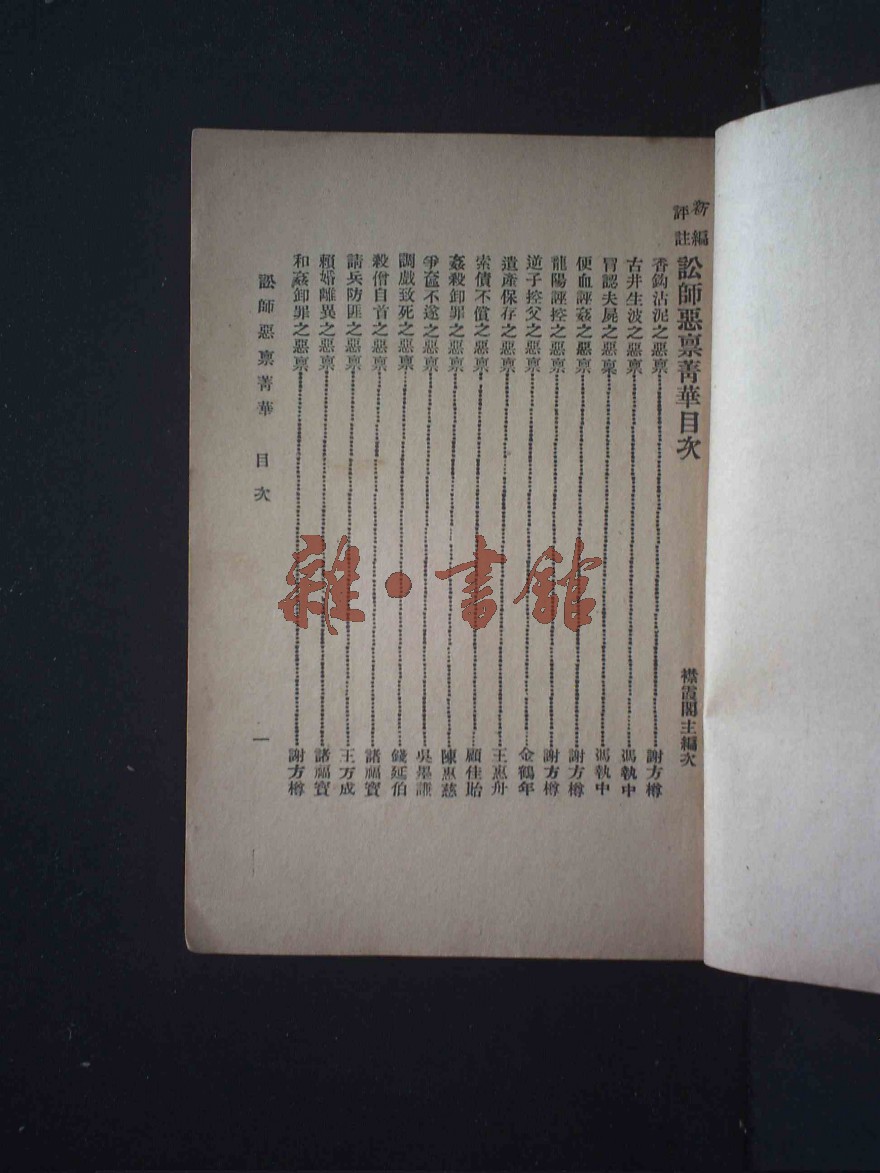 新編評註訟師惡禀菁華目次
襟霞閣主編次
香鈎沾泥之惡禀 謝方樽
古井生波之惡禀 馮執中
冒認夫屍之惡禀 馮執中
便血誣姦之惡禀 謝方樽
龍陽誣控之惡禀 謝方樽
逆子控父之惡禀 金鶴年
遺產保存之惡禀 王惠舟
索債不償之惡禀 顧佳貽
姦殺卸罪之惡禀 陳惠慈
爭產不遂之惡禀 吳墨謙
調戲致死之惡禀 錢延伯
殺僧自首之惡禀 諸福寶
請兵防匪之惡禀 王万成
賴婚離異之惡禀 諸福寶
和姦卸罪之惡禀 謝方樽
訟師惡禀菁華 目次
一
雜·書館